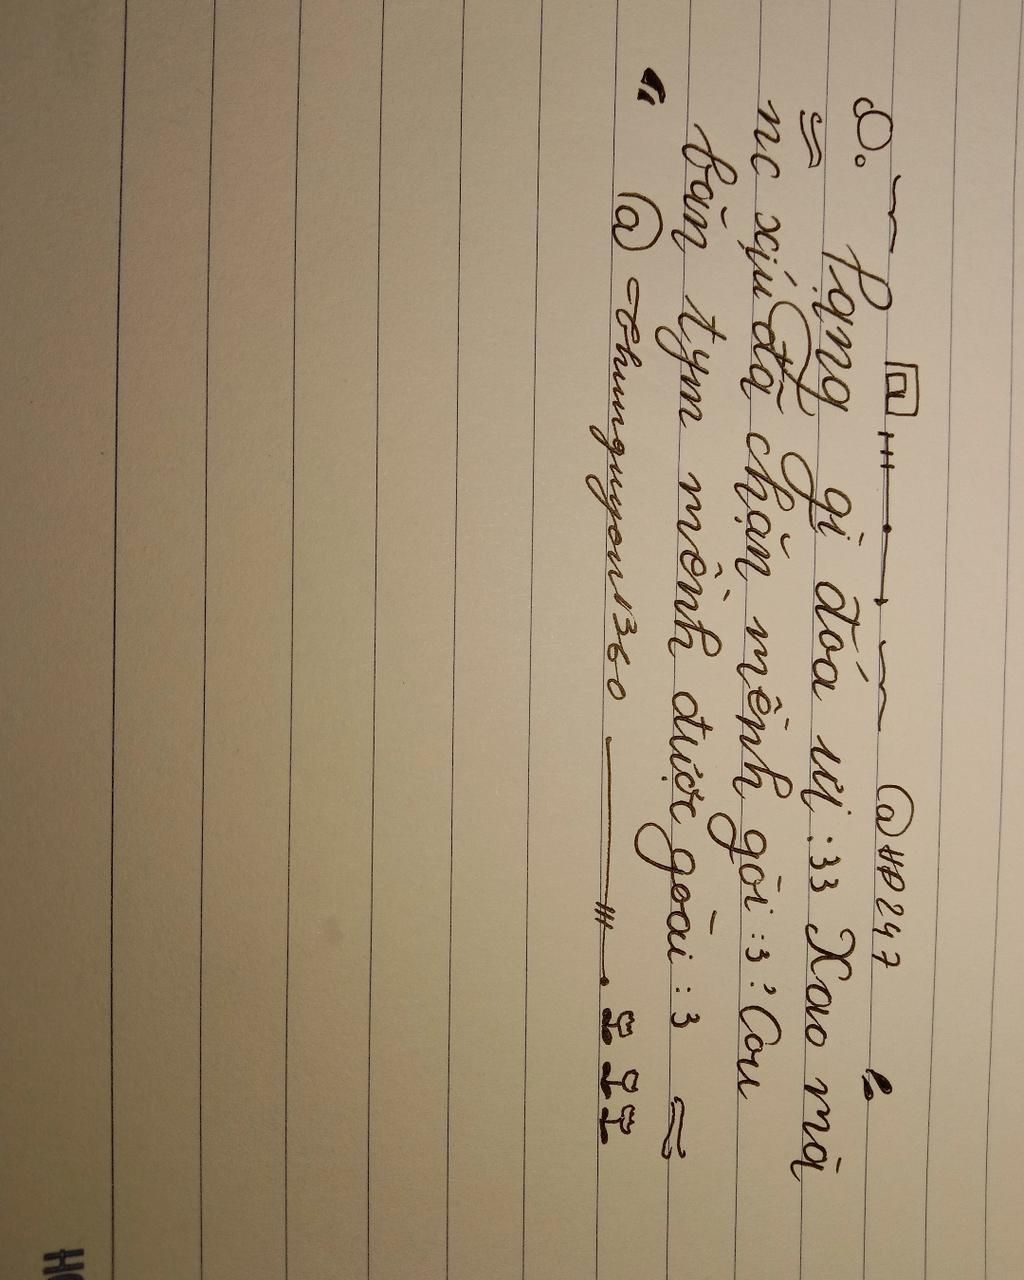 @HĐ247
gì đoá ui :33 Xao mà
nc xịu đã chặn mềnh gòi :3 : Cou
bắn tym mềnh được gòài : 3
@ thunguyen1360